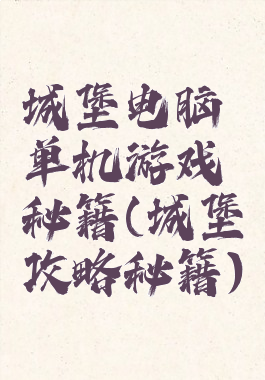 城堡电脑
单机游戏
秘籍(城堡
攻略秘籍)